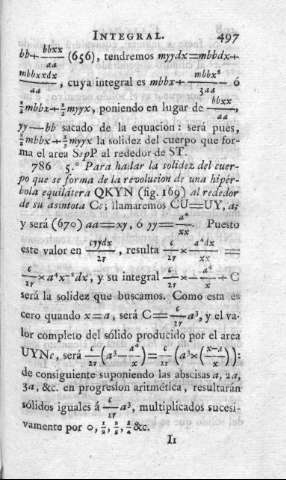 INTEGRAL. 497
bb+ bbxx/aa (656), tendremos myydx=mbbdx+
mbbxxdx/aa, cuya integral es mbbx+ mbbx³/3aa ó
⅔mbbx+⅓myyx, poniendo en lugar de bbxx/aa,
yy—bb sacado de la equacion: será pues,
⅔mbbx+⅓myyx la solidez del cuerpo que for-
ma el area SspP al rededor de ST.
786 5.° Para hadar la solidez del cuer-
po que se forma de la revolucion de una hipér-
bola equilátera QKYN (fig. 169) al rededor
de su asimtota Cc; llamaremos CU=UY, a;
y será (670) aa=xy, ó yy= a⁴/xx. Puesto
este valor en cyydx/2r, resulta c/2r × a⁴dx/xx =
c/2r ×a⁴x⁻²dx, y su integral —c/2r × a⁴/x + C
será la solidez que buscamos. Como esta es
cero quando x=a, será C= c/2r a³, y el va-
lor completo del sólido producido por el area
UYNc, será c/2r (a³— a⁴/x)= c/2r (a³×(x—a/x)):
de consiguiente suponiendo las abscisas a, 2a,
3a, &c. en progresion aritmética, resultarán
sólidos iguales á c/2r a³, multiplicados sucesi-
vamente por 0, ½, ⅔, ¾ &c.
Ii